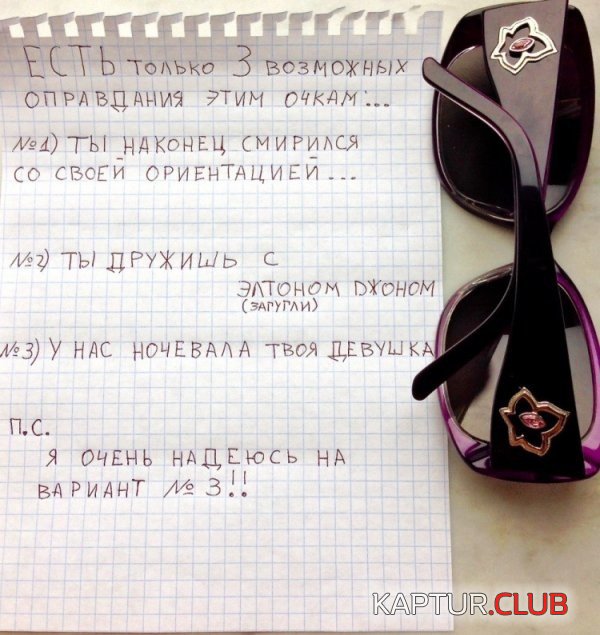 ЕСТЬ только 3 возможных
оправдания этим очкам...
№1) Ты наконец смирился
со своей ориентацией...
№2) Ты дружишь с
Элтоном Джоном
(загугли)
№3) У нас ночевала твоя девушка
П.С.
Я очень надеюсь на
вариант № 3!!
KAPTUR.CLUB